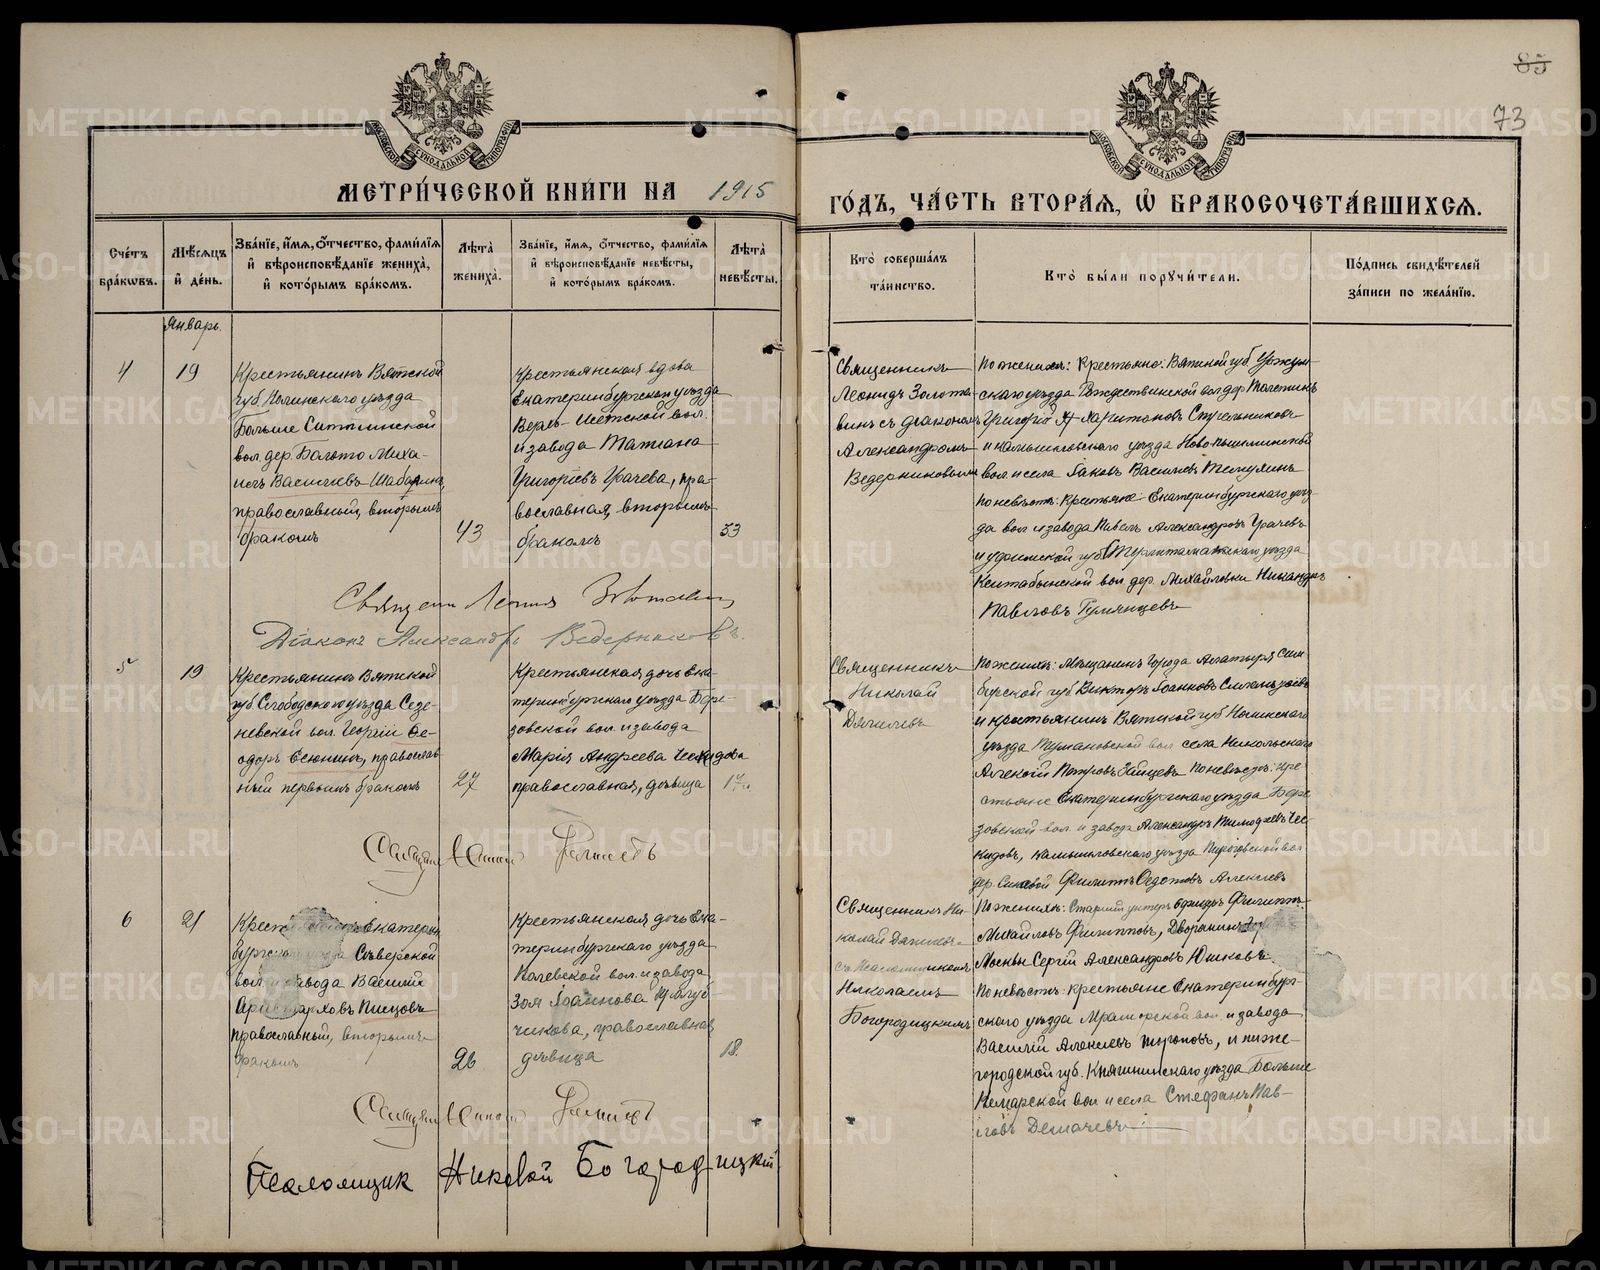 85
73
МОСКОВСКОЙ СѴНОДАЛЬНОЙ ТИПОГРАФІИ
МОСКОВСКОЙ СѴНОДАЛЬНОЙ ТИПОГРАФІИ
МЕТРИ́ЧЕСКОЙ КНИ́ГИ НА 1915
ГО́ДЪ, ЧА́СТЬ ВТОРА́Я, Ѡ БРАКОСОЧЕТА́ВШИХСЯ.
Сче́тъ бра́кѡвъ.
Мѣ́сяцъ и҆ де́нь.
Зва́нїе, и҆́мя, ѻ҆́тчество, фами́лїя и҆ вѣроисповѣ́данїе жениха̀, и҆ кото́рымъ бра́комъ.
Лѣ́та жениха̀.
Зва́нїе, и҆́мя, ѻ҆́тчество, фами́лїя и҆ вѣроисповѣ́данїе невѣ́сты, и҆ кото́рымъ бра́комъ.
Лѣ́та невѣ́сты.
Кто̀ соверша́лъ та́инство.
Кто̀ бы́ли поручи́тели.
По́дпись свидѣ́телей за́писи по жела́нїю.
Январь.
4
19
Крестьянинъ Вятской
губ. Нолинскаго уѣзда
Больше Ситминской
вол. дер. Болото Миха-
илъ Васильевъ Шабалинъ,
православный, вторымъ
бракомъ
43
Крестьянская вдова
Екатеринбургскаго уѣзда
Верхъ-Исетской вол.
и завода Татіана
Григоріева Грачева, пра-
вославная, вторымъ
бракомъ
33
Священникъ
Леонидъ Золота-
винъ съ діакономъ
Александромъ
Ведерниковымъ
По женихѣ: крестьяне: Вятской губ. Уржум-
скаго уѣзда Рождественской вол. дер.
Григорій Харитоновъ Стрѣльниковъ
и Камышловскаго уѣзда Ново-пышминской
вол. и села Іаковъ Васильевъ
По невѣстѣ: крестьяне: Екатеринбургскаго уѣз-
да вол. и завода Павелъ Александровъ Грачевъ
и Уфимской губ. Стерлитамакскаго уѣзда
вол. дер. Михайловки Никандръ
Павловъ Румянцевъ
Священникъ Леонидъ Золотавинъ
Діаконъ Александръ Ведерниковъ.
5
19
Крестьянинъ Вятской
губ. Слободского уѣзда Сезе-
невской вол. Георгій Ѳе-
одоръ Ѳсюнинъ, православ
ный первымъ бракомъ
27
Крестьянская дочь Ека-
теринбургскаго уѣзда Бере-
зовской вол. и завода
Марія Андреева Ческидова
православная, дѣвица
17
Священникъ
Николай
Дягилевъ
По женихѣ: Мѣщанинъ города Алатыря Сим-
бирской губ. Викторъ Іоанновъ
и крестьянинъ Вятской губ. Нолинскаго
уѣзда Тумановской вол. села Никольскаго
Алексій Петровъ Зайцевъ По невѣстѣ: кре-
стьяне Екатеринбургскаго уѣзда Бере
зовской вол. и завода Александръ Тимофеевъ Чес-
кидовъ, Камышловскаго уѣзда вол.
дер. Филиппъ Ѳедотовъ Алексѣевъ
6
21
Крестьянинъ Екатерин
бургскаго уѣзда Сѣверской
вол. и завода Василій
Аристарховъ Пищовъ
православный, вторымъ
бракомъ
26
Крестьянская дочь Ека-
теринбургскаго уѣзда
Полевской вол. и завода
Зоя Іоаннова
чикова, православная
дѣвица
18.
Священникъ Ни-
колай Дягилевъ
съ псаломщикомъ
Николаемъ
Богородицкимъ
По женихѣ: Старшій унтеръ офицеръ Филиппъ
Михайловъ Филипповъ, Дворянинъ гор.
Москвы Сергій Александровъ Юшковъ.
По невѣстѣ: крестьяне Екатеринбург-
скаго уѣзда Мраморской вол. и завода
Василій Алексѣевъ, и ниже-
городской губ. Княгининскаго уѣзда Больше
вол. и села Стефанъ Пав-
ловъ
Псаломщик Николай Богородицкій
METRIKI.GASO-URAL.RU